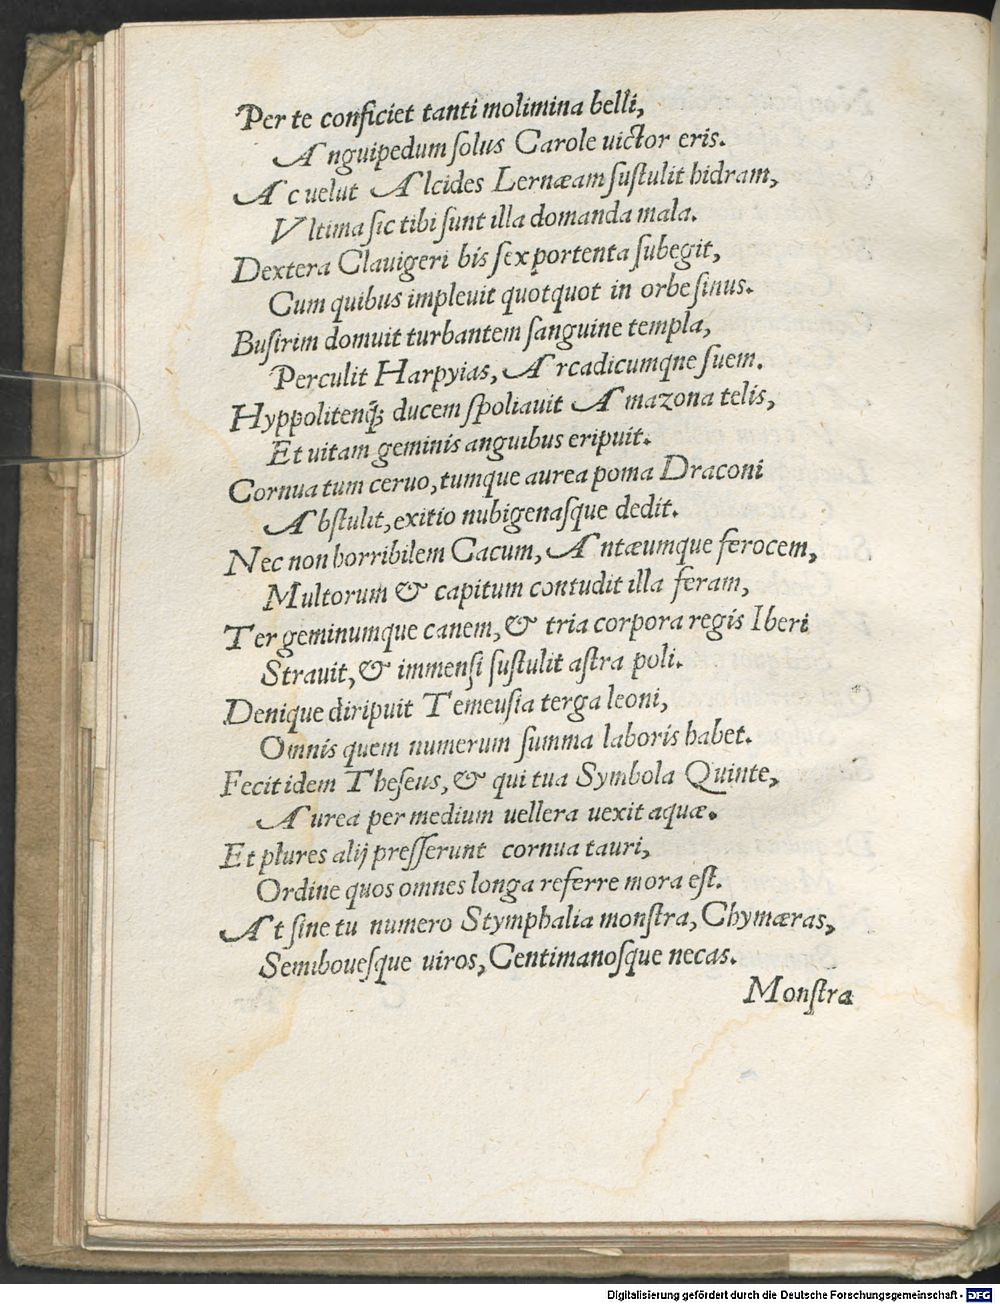 Per te conficiet tanti molimina belli,
Anguipedum ſolus Carole uictor eris.
Ac uelut Alcides Lernæam ſuſtulit hidram,
Vltima ſic tibi ſunt illa domanda mala.
Dextera Clauigeri bis ſex portenta ſubegit,
Cum quibus impleuit quotquot in orbe ſinus.
Buſirim domuit turbantem ſanguine templa,
Perculit Harpyias, Arcadicumqne ſuem.
Hyppolitenq́ꝫ ducem ſpoliauit Amazona telis,
Et uitam geminis anguibus eripuit.
Cornua tum ceruo, tumque aurea poma Draconi
Abſtulit, exitio nubigenaſque dedit.
Nec non horribilem Cacum, Antæumque ferocem,
Multorum & capitum contudit illa feram,
Ter geminumque canem, & tria corpora regis Iberi
Strauit, & immenſi ſuſtulit aſtra poli.
Denique diripuit Temeuſia terga leoni,
Omnis quem numerum ſumma laboris habet.
Fecit idem Theſeus, & qui tua Symbola Quinte,
Aurea per medium uellera uexit aquæ.
Et plures alij preſſerunt cornua tauri,
Ordine quos omnes longa referre mora eſt.
At ſine tu numero Stymphalia monſtra, Chymæras,
Semiboueſque uiros, Centimanoſque necas.
Monſtra
Digitalisierung gefördert durch die Deutsche Forschungsgemeinschaft - DFG